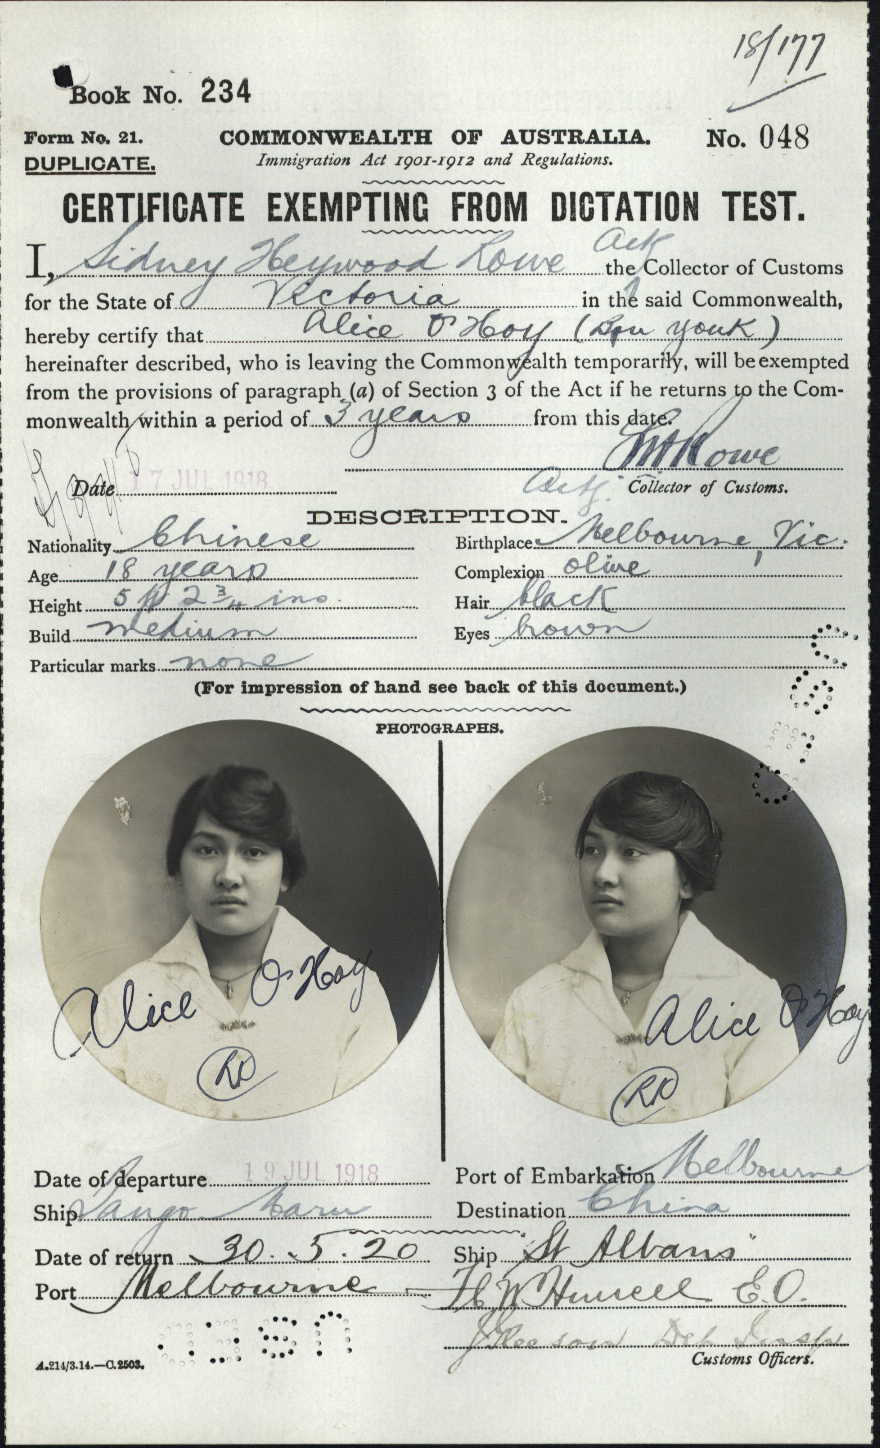 18/177
Book No. 234
Form No. 21. COMMONWEALTH OF AUSTRALIA. No. 048
DUPLICATE. Immigration Act 1901-1912 and Regulations.
CERTIFICATE EXEMPTING FROM DICTATION TEST.
I, Sidney Heywood Lowe the Actg Collector of Customs
for the State of Victoria in the said Commonwealth,
hereby certify that Alice O'Hoy (Youk)
hereinafter described, who is leaving the Commonwealth temporarily, will be exempted
from the provisions of paragraph (a) of Section 3 of the Act if he returns to the Com-
monwealth within a period of 3 years from this date.
Rowe
Date 17 JUL 1918 Actg. Collector of Customs.
DESCRIPTION.
Nationality Chinese Birthplace Melbourne, Vic.
Age 18 years Complexion olive
Height 5 ft 2 3/4 ins. Hair black
Build medium Eyes brown
Particular marks none
(For impression of hand see back of this document.)
PHOTOGRAPHS.
USED
Alice O'Hoy Alice O'Hoy
Date of departure 19 JUL 1918 Port of Embarkation Melbourne
Ship Tango Maru Destination China
Date of return 30.5.20 Ship "St Albans"
Port Melbourne E.O.
USED
A.214/3.14.—C.2503. Customs Officers.